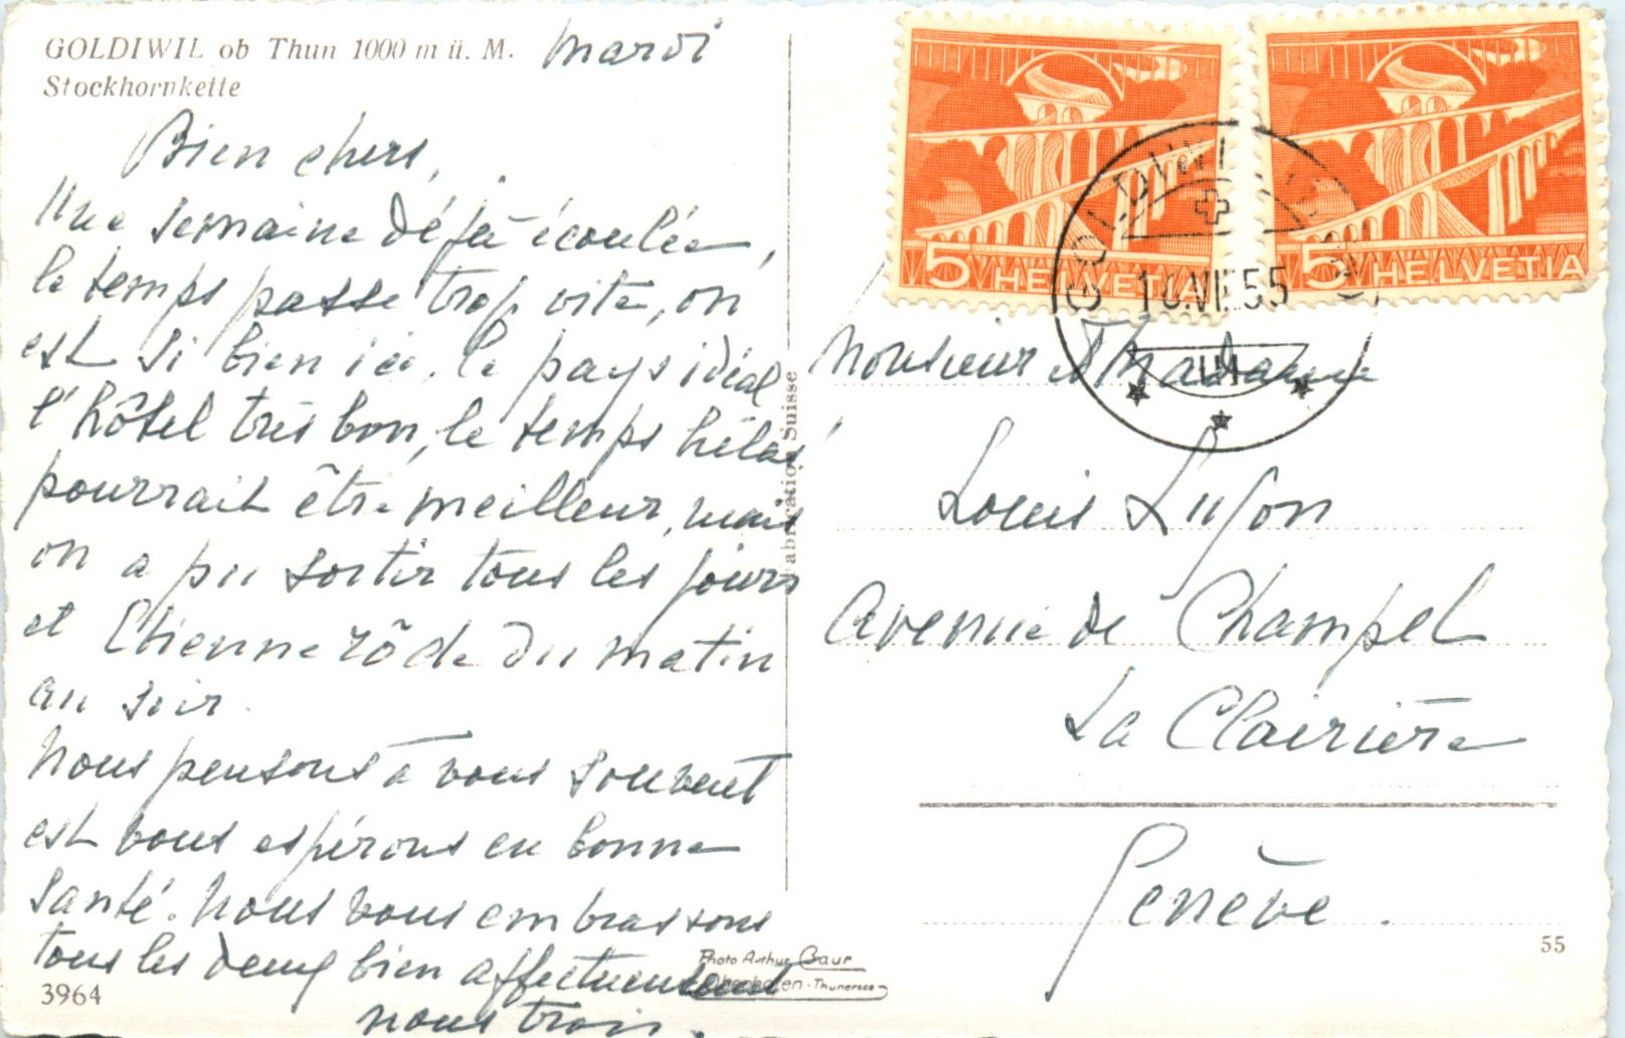 GOLDIWIL ob Thun 1000 m ü. M.
Stockhornkette
mardi
Bien chers,
Une semaine déjà écoulée,
le temps passe trop vite, on
est si bien ici, le pays idéal
l'hôtel très bon, le temps hélas
pourrait être meilleur, mais
on a pu sortir tous les jours
et Etienne rôde du matin
au soir.
Nous pensons à vous souvent
est vous espérons en bonne
santé. Nous vous embrassons
tous les deux bien affectueusement
nous trois.
3964
Fabrication Suisse
Photo Arthur Baur
Oberhofen - Thunersee
5 HELVETIA
5 HELVETIA
GOLDIWIL
VII.55
Monsieur et Madame
Louis
Avenue de Champel
La Clairière
Genève.
55